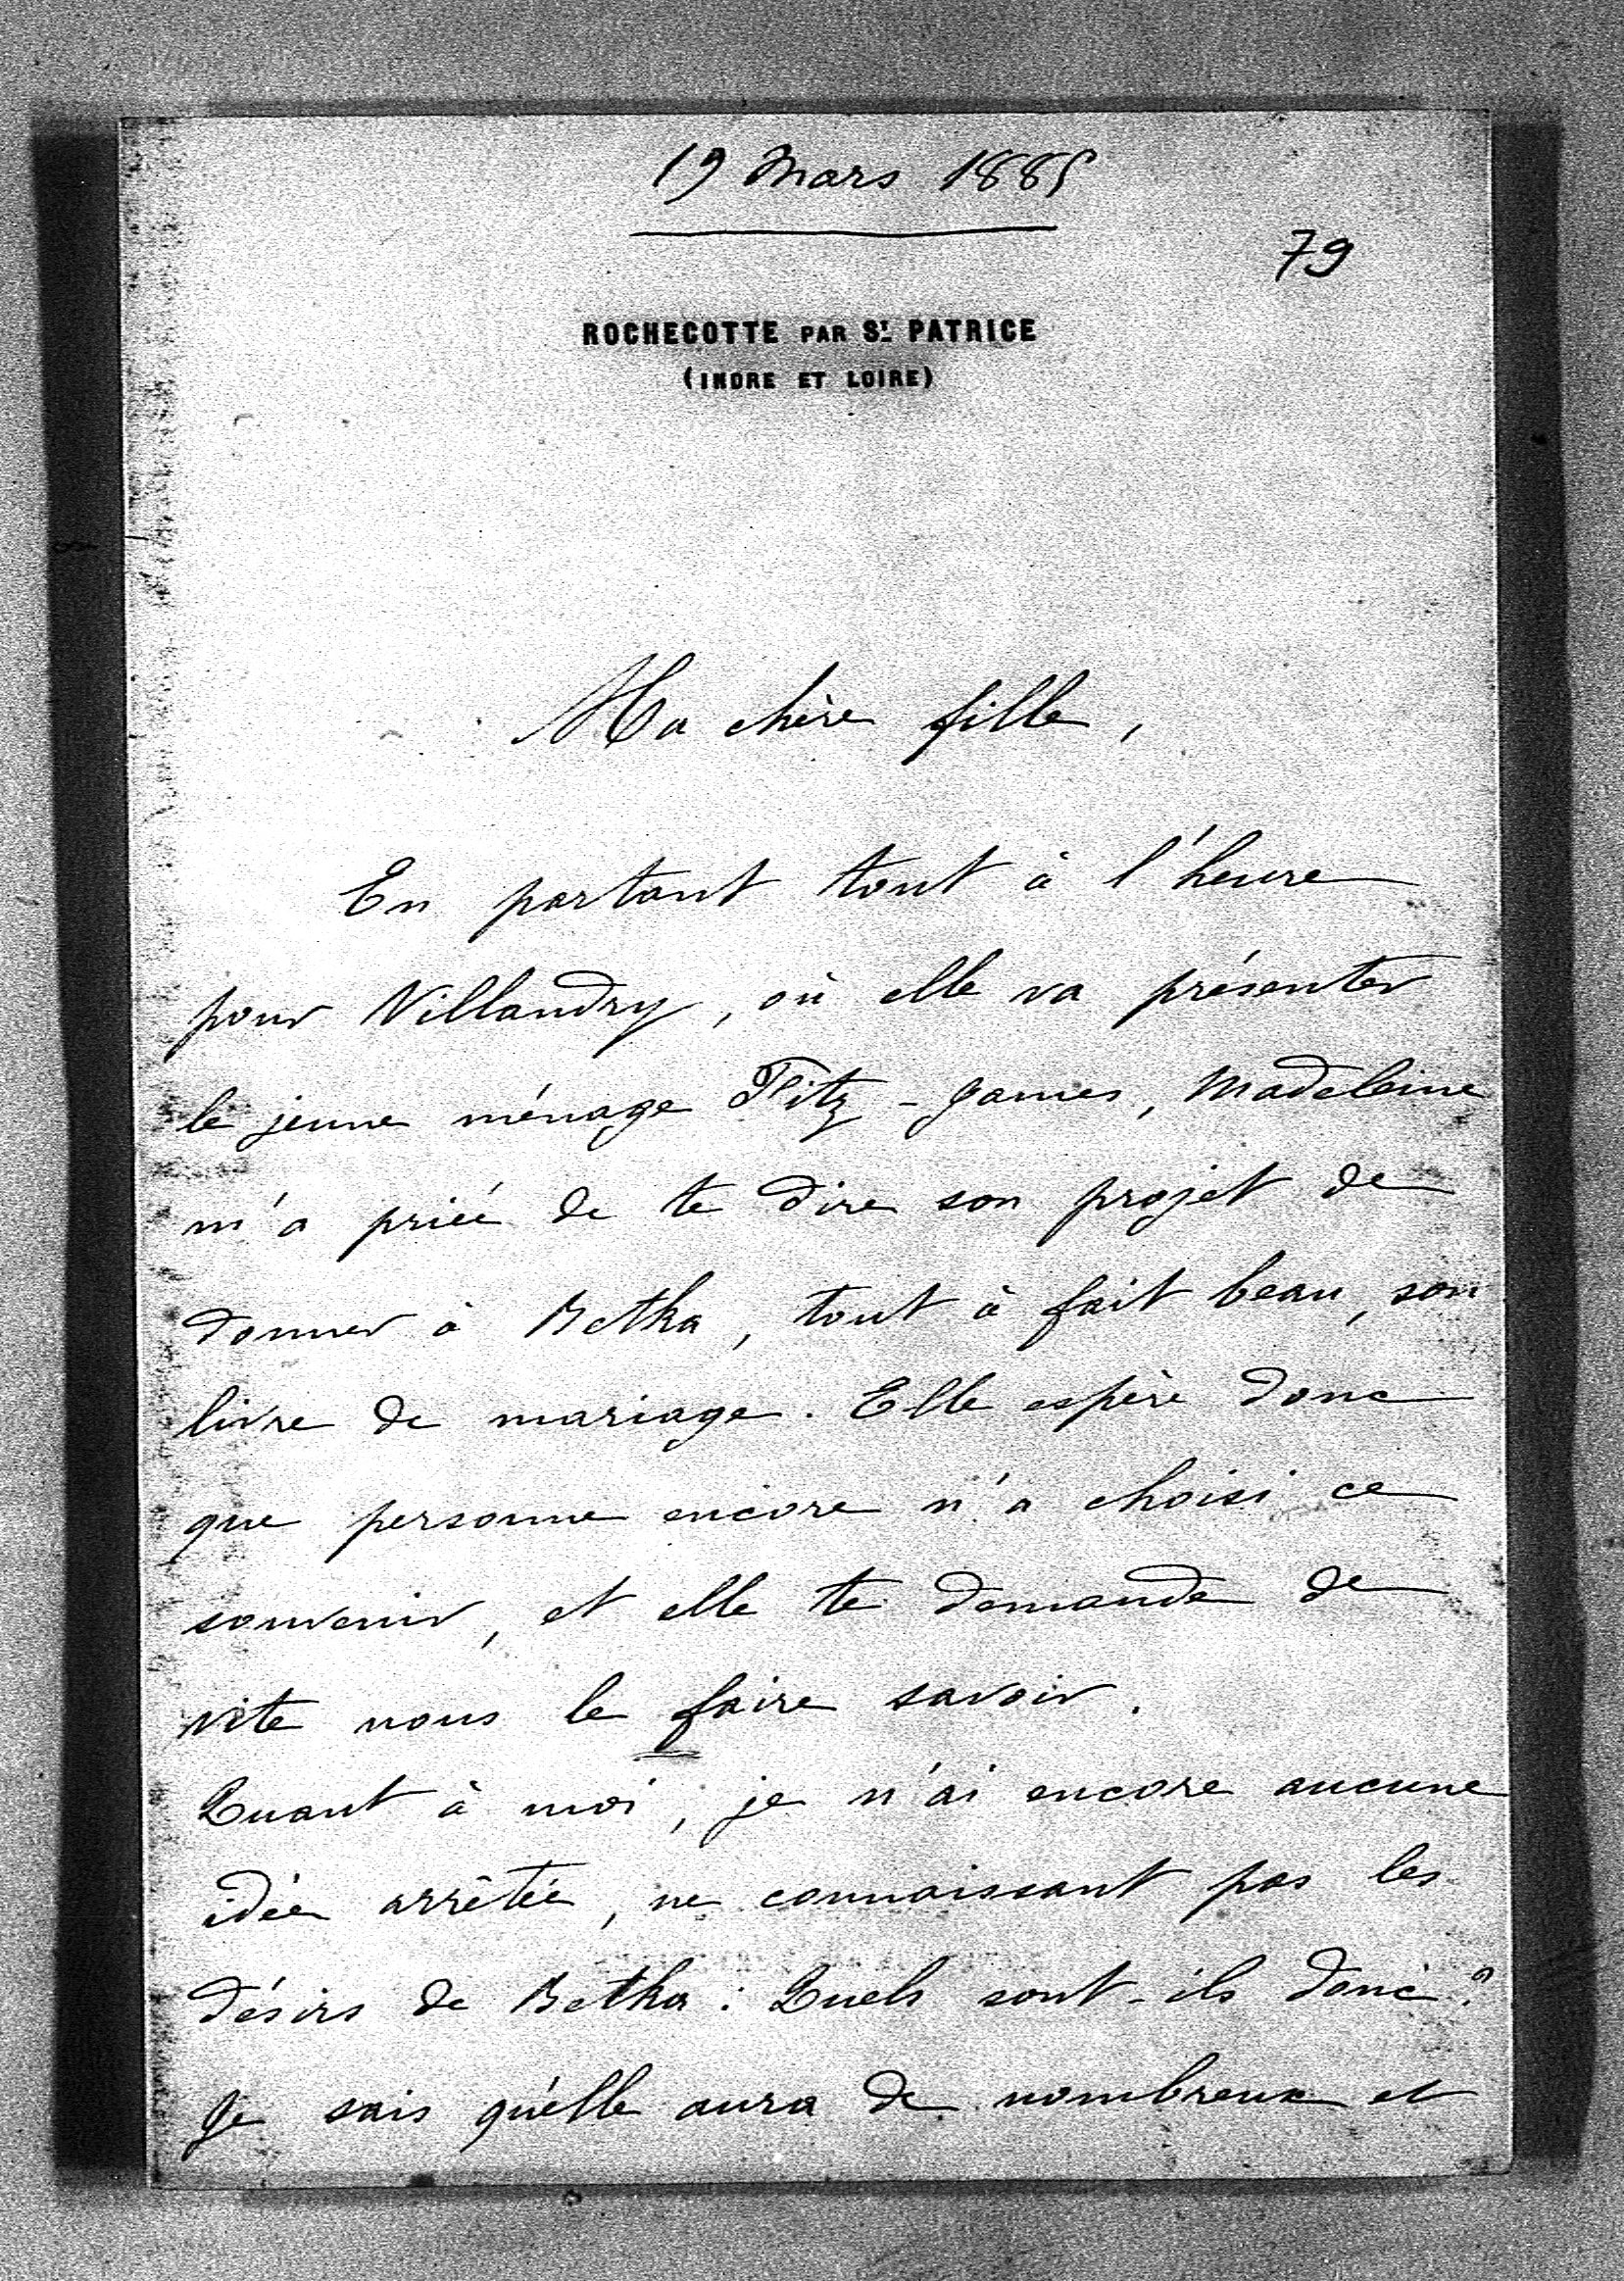 19 Mars 1885
79
ROCHECOTTE PAR ST. PATRICE
(INDRE ET LOIRE)
Ma chère fille,
En partant tout à l'heure
pour Villandry, où elle va présenter
le jeune ménage Fitz-James, Madeleine
m'a priée de te dire son projet de
donner à Betka, tout à fait beau, son
livre de mariage. Elle espère donc
que personne encore n'a choisi ce
souvenir, et elle te demande de
vite nous le faire savoir.
Quant à moi, je n'ai encore aucune
idée arrêtée, ne connaissant pas les
désirs de Betka: Quels sont-ils donc?
Je sais qu'elle aura de nombreux et